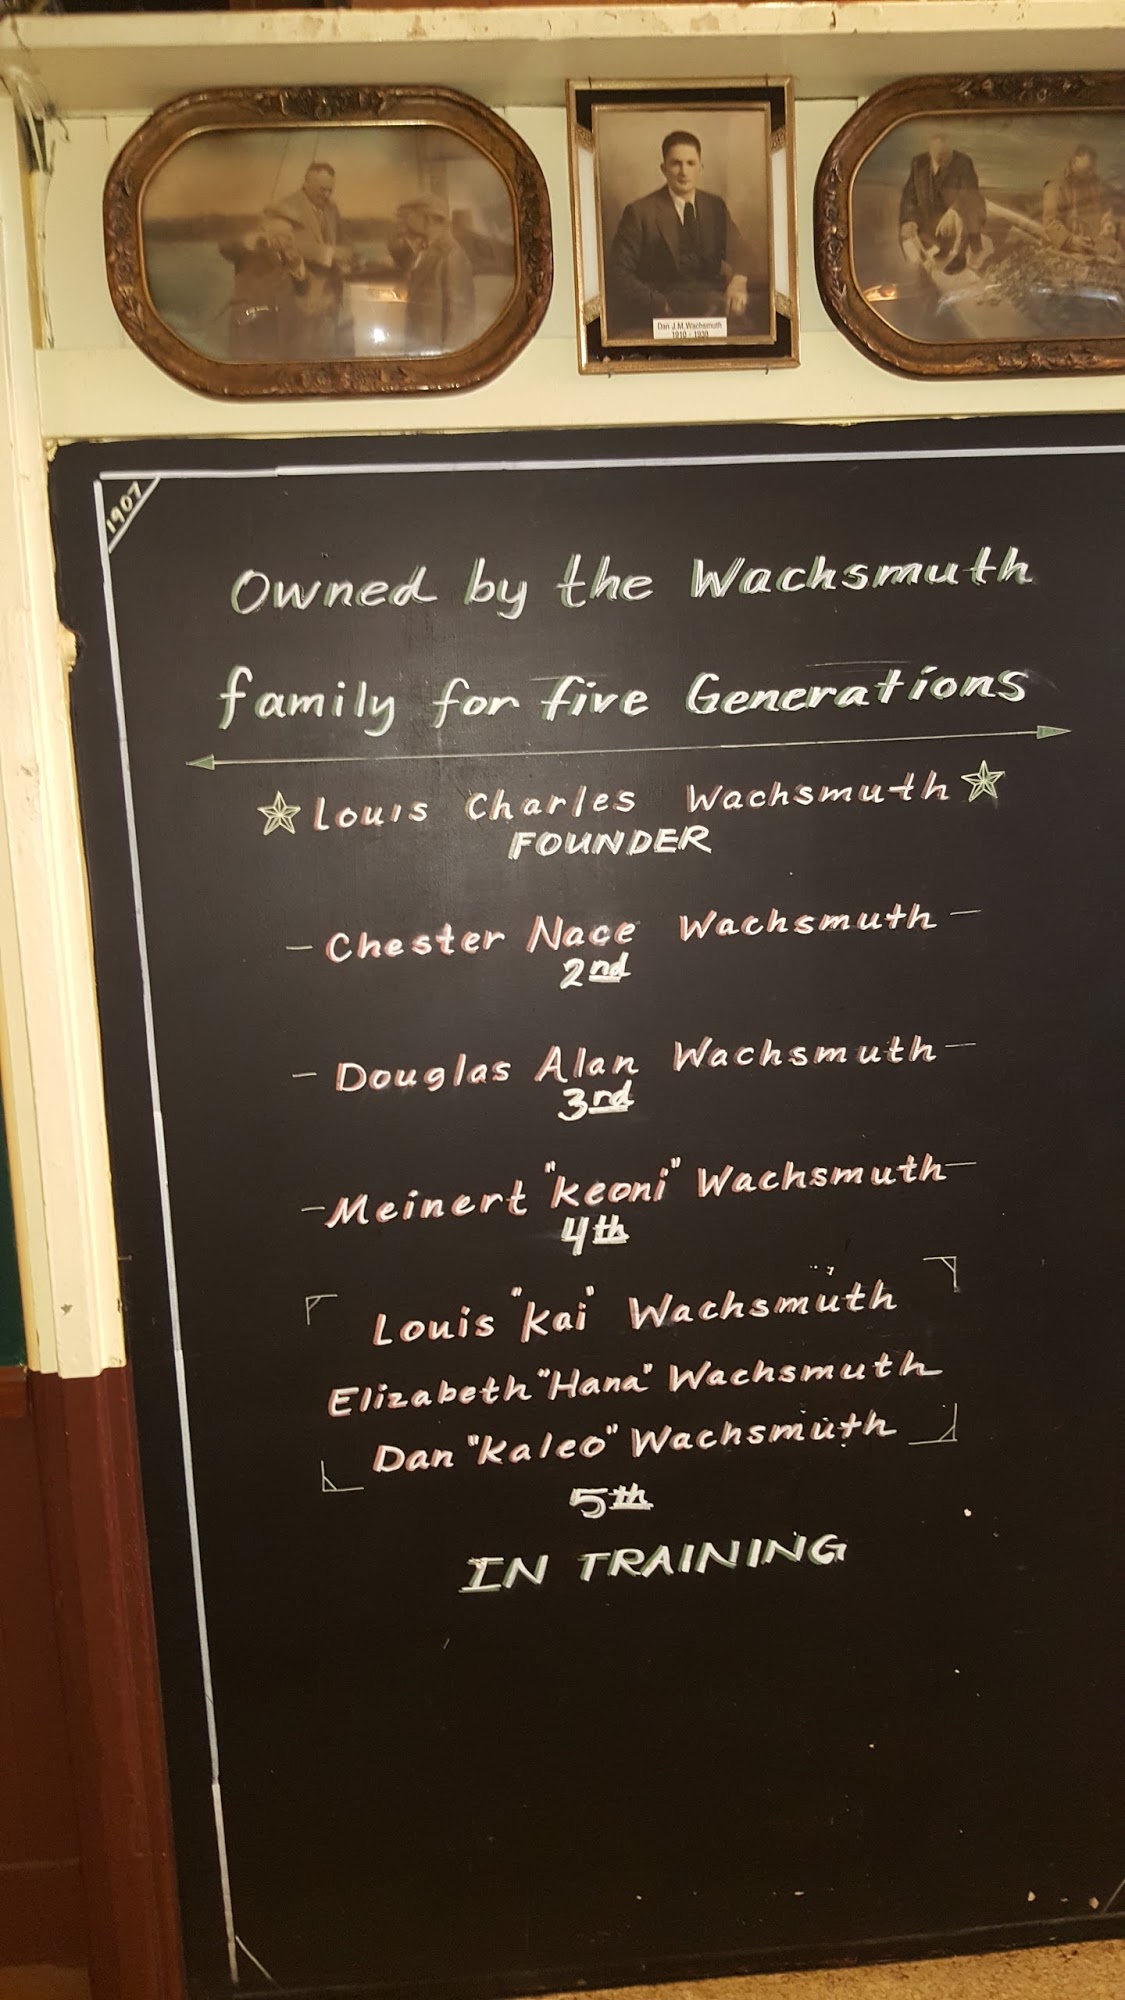 Dan J.M. Wachsmuth
1910 - 1930
1907
Owned by the Wachsmuth
family for five Generations
Louis Charles Wachsmuth
FOUNDER
- Chester Nace Wachsmuth -
2nd
- Douglas Alan Wachsmuth -
3rd
- Meinert "keoni" Wachsmuth -
4th
Louis "kai" Wachsmuth
Elizabeth "Hana" Wachsmuth
Dan "kaleo" Wachsmuth
5th
IN TRAINING